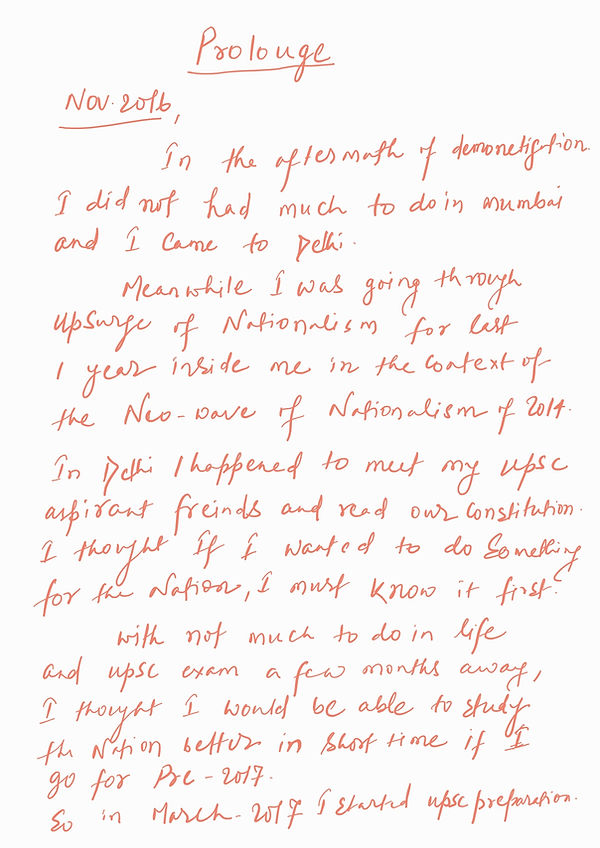 Prolouge
Nov. 2016,
In the aftermath of demonetisation.
I did not had much to do in mumbai
and I came to Delhi.
Meanwhile I was going through
upsurge of Nationalism for last
1 year inside me in the context of
the Neo-wave of Nationalism of 2014.
In Delhi I happened to meet my upsc
aspirant freinds and read our constitution.
I thought If I wanted to do Something
for the Nation, I must know it first.
with not much to do in life
and upsc exam a few months away,
I thought I would be able to study
the Nation better in short time if I
go for Pre-2017.
So in March-2017 I started upsc preparation.